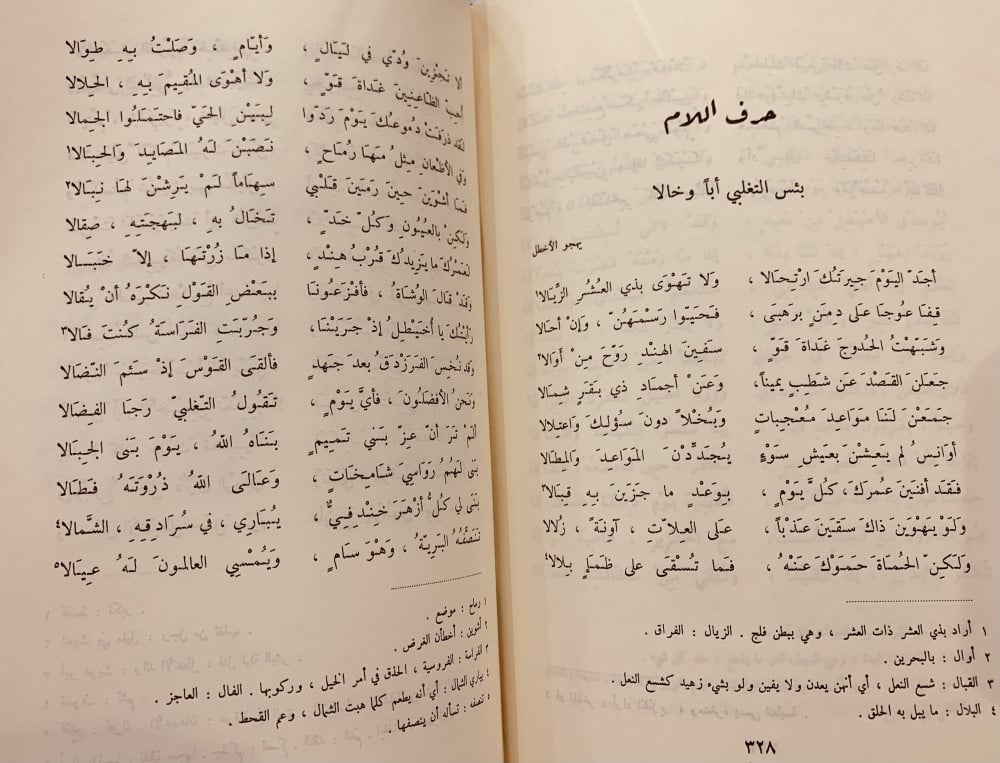 حرف اللام
بئس التغلبي أباً وخالا
يهجو الأخطل
أجَدّ اليَوْمَ جِيرَتُكَ ارْتِحَالا ، وَلا تَهْوَى بذي العُشُرِ الزِّيَالا١
قِفَا عُوجَا عَلى دِمَنٍ بِرَهبَى ، فَحَيّوا رَسْمَهُنّ ، وَإنْ أحَالا
وَشَبّهْتُ الحُدوجَ غَداةَ قَوٍّ ، سَفينَ الهِنْدِ رَوّحَ مِنْ أوَالا٢
جَعَلنَ القَصْدَ عَن شَطِبٍ يمِيناً، وَعَنْ أجمادِ ذي بَقَرٍ شِمَالا
جَمَعْنَ لَنَا مَوَاعِدَ مُعْجِباتٍ وَبُخْلاً دونَ سُؤلِكَ وَاعتِلالا
أوَانِسُ لم يَعِشْنَ بعَيشِ سَوْءٍ يُجَدِّدْنَ المَوَاعِدَ وَالمِطَالا
فَقَد أفنَينَ عُمرَكَ، كلَّ يَوْمٍ ، بِوَعْدٍ ما جَزَينَ بِهِ قِبالا٣
وَلَوْ يَهْوَينَ ذاكَ سَقَينَ عَذْباً، عَلى العِلاّتِ ، آوِنَةً ، زُلالا
وَلكِنّ الحُمَاةَ حَمَوْكَ عَنْهُ ، فَما تُسْقَى على ظَمَإٍ بِلالا٤
١ أراد بذي العشر ذات العشر ، وهي ببطن فلج . الزيال : الفراق .
٢ أوال : بالبحرين .
٣ القبال : شسع النعل ، أي أنهن يعدن ولا يفين ولو بشيء زهيد كشسع النعل .
٤ البلال : ما يبل به الحلق .
٣٢٨
ألا تَجْزِينَ وُدّي في لَيَالٍ ، وَأيّامٍ ، وَصَلْتُ بِهِ طِوَالا
أُحِبّ الظّاعِنِينَ غَداةَ قَوٍّ ، وَلا أهْوَى المُقِيمَ بِهِ ، الحِلالا
لَقد ذَرَفَتْ دُموعُكَ يَوْمَ رَدّوا لِبَيْنِ الحَيّ فاحتَمَلُوا الجِمالا
وَفي الأظْعانِ مِثلُ مَهَا رُمَاحٍ ، نَصَبْنَ لَهُ المَصَايِدَ وَالحِبَالا١
فَمَا أشْوَينَ حينَ رَمَينَ قَلْبي سِهَاماً لَمْ يَرِشْنَ لهَا نِبَالا٢
وَلكِنْ بالعُيُونِ وَكُلّ خَدٍّ ، تَخَالُ بهِ ، لبَهجَتِهِ ، صِقالا
لَعَمْرُكَ ما يَزِيدُكَ قُرْبُ هِنْدٍ ، إذا مَا زُرْتَهَا ، إلاّ خَبَالا
وَقَدْ قالَ الوُشاةُ ، فأفْزَعُونَا ببَعْضِ القَوْلِ نَكْرَهُ أنْ يُقالا
رَأيْتُكَ يا أُخَيْطِلُ إذْ جَرَيْنَا، وَجُرّبَتِ الفَرَاسَةُ كُنتَ فَالا٣
وَقد نُخِسَ الفَرَزْدَقُ بعدَ جَهدٍ فألقَى القَوْسَ إذْ سَئمَ النّضَالا
وَنَحنُ الأفْضَلُونَ، فأيَّ يَوْمٍ ، تَقُولُ التّغلبيّ رَجَا الفِضَالا
ألمْ تَرَ أنّ عِزّ بَني تَمِيمٍ بَنَاهُ اللّهُ ، يَوْمَ بَنى الجِبالا
بَنى لهُمُ رَوَاسِيَ شَامِخَاتٍ ، وَعَالَى اللّهُ ذُرْوَتَهُ فَطَالا
بَنَى لي كُلُّ أزْهَرَ خِنْدِفيٍّ ، يُبَارِي ، في سُرَادِقِهِ ، الشَّمالا٤
تَنَصَّفُهُ البَرِيّةُ ، وَهْوَ سَامٍ ، وَيُمْسِي العالَمونَ لَهُ عِيالا٥
١ رماح : موضع .
٢ أشوين : أخطأن الغرض .
٣ الفراسة : الفروسية ، الحذق في أمر الخيل ، وركوبها . الفال : العاجز .
٤ يباري الشمال : أي أنه يطعم كلما هبت الشمال ، وعم القحط .
٥ تنصفه : تسأله أن ينصفها .